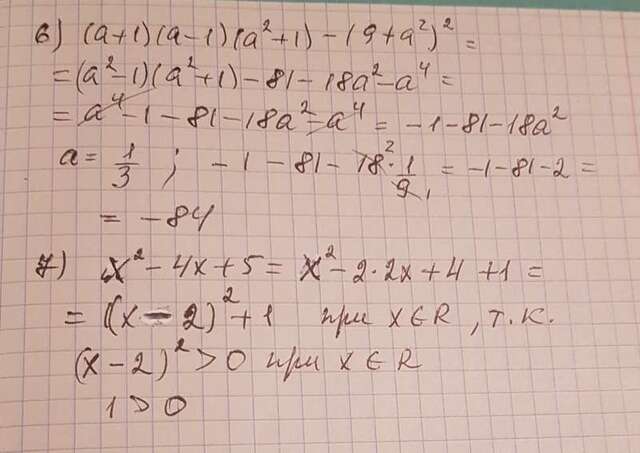 6) (a+1)(a-1)(a²+1)-(9+a²)²=
=(a²-1)(a²+1)-81-18a²-a⁴=
=a⁴-1-81-18a²-a⁴=-1-81-18a²
a=1/3; -1-81-18²·1/9,=-1-81-2=
=-84
7) x²-4x+5=x²-2·2x+4+1=
=((x-2)²+1 при x∈R, т.к.
(x-2)²>0 при x∈R
1>0